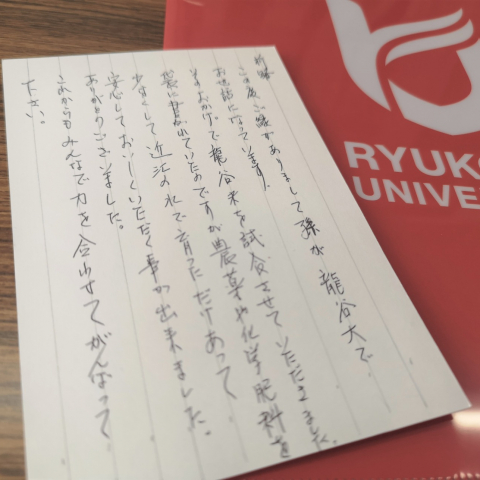 前略
この度ご縁がありまして孫が龍谷大で
お世話になっています。
そのおかげで龍谷米を試食させていただきました。
袋に書かれていたのですが農薬や化学肥料を
少なくして近江の水で育っただけあって
安心しておいしくいただく事が出来ました。
ありがとうございました。
これからもみんなで力を合わせてがんばって
下さい。
RYUK
UNIVE